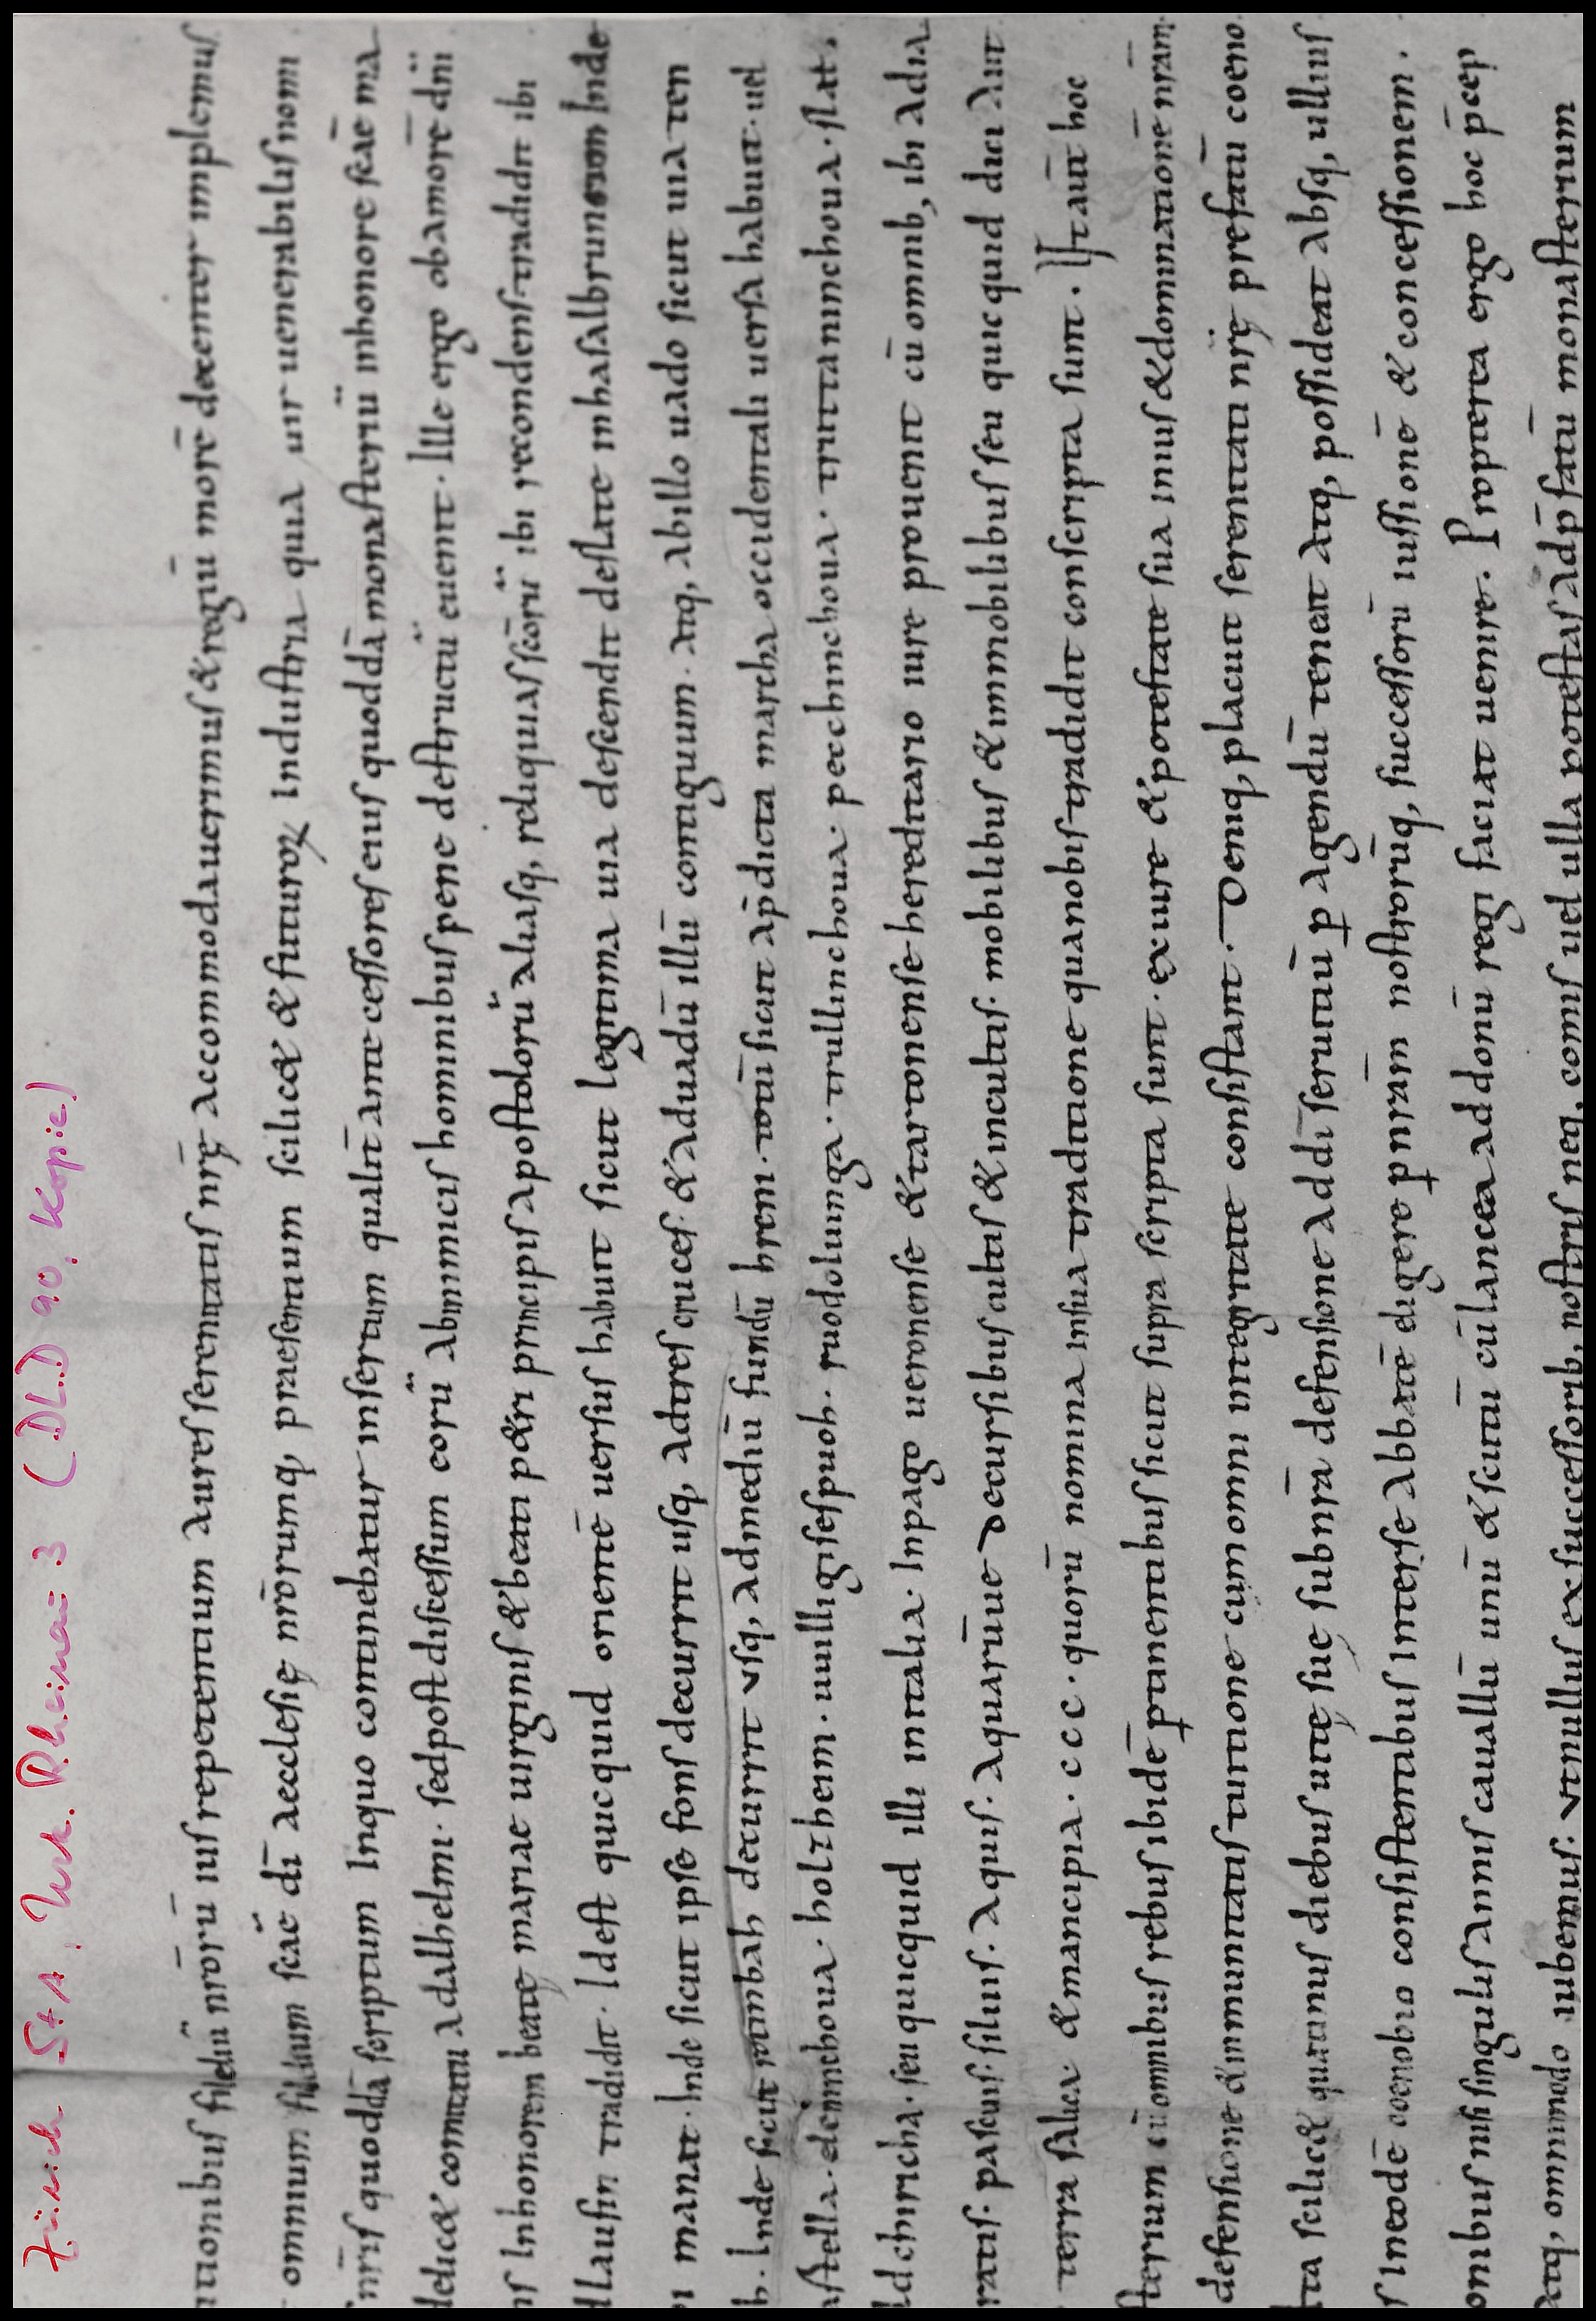 Zürich StA, Urk. Rheinau 3 (DLD 90, Kopie)
itionibus fideliū nr̄orū ius repetentium aures serenitatis nr̄ę accommodauerimus & regū morē decenter implemus
omnium fidelium sc̄ae dī aecclesię nr̄orumq, praesentium scilic& & futuroꝝ Industria qua uir uenerabilis nomi
nr̄is quoddā scriptum Inquo continebatur insertum qualit̄ ante cessores eius quoddā monasteriū inhonore sc̄ae ma
delic& comitatu adalhelmi. sed post discessum eorū abinimicis hominibus pene destructū euenit. Ille ergo ob amorē dn̄i
is Inhonorem beatę mariae uirginis & beati p&ri principis apostolorū aliasq, reliquias sc̄orū ibi recondens tradidit ibi
llausin tradidit. Id est quicquid orientē uersus habuit sicut legitima uia descendit de slate inhasalbrunnon Inde
i manat. Inde sicut ipse fons decurrit usq, adtres cruces. & aduadū illū contiguum. atq, abillo uado sicut uia ten
h. Inde sicut decurrit vsq, admediū fundū hreni. totū sicut ap̄dicta marcha occidentali uersa habuit. uel
astella. holzheim. uuilligisespuoh. ruodoluinga. trullinchoua. pecchinchoua. truttaninchoua. slat.
ldchiricha. seu quicquid illi initalia. Inpago ueronense & tartonense hereditario iure prouenit cū omnib, ibi adia
ratis. pascuis. siluis. aquis. aquarūue decursibus cultis & incultis. mobilibus & immobilibus seu quicquid dici aut
terra salica & mancipia. ccc. quorū nomina insua traditione quanobis tradidit conscripta sunt. Istaūt hoc
sterium cū omnibus rebus ibidē ꝑtinentibus sicut supra scripta sunt. exiure & potestate sua inius & dominationē nr̄am
defensione & immunitatis tuitione cum omni integritate consistant. Deniq, placuit serenitati nr̄ę prefatū coeno
ita scilic& quatinus diebus uitę suę sub nr̄a defensione ad dī seruitiū ꝑ agendū teneat atq, possideat absq, ullius
s Ineodē coenobio consistentibus Interse abbatē eligere ꝑ nr̄am nostrorūq, successorū iussionē & concessionem.
onibus nisi singulis annis cauallū unū & scutū cū lancea ad donū regi faciat uenire. Propterea ergo hoc p̄cep
atq, omnimodo iubemus. vtnullus exsuccessorib, nostris neq, comis uel ulla potestas adp̄fatū monasterium